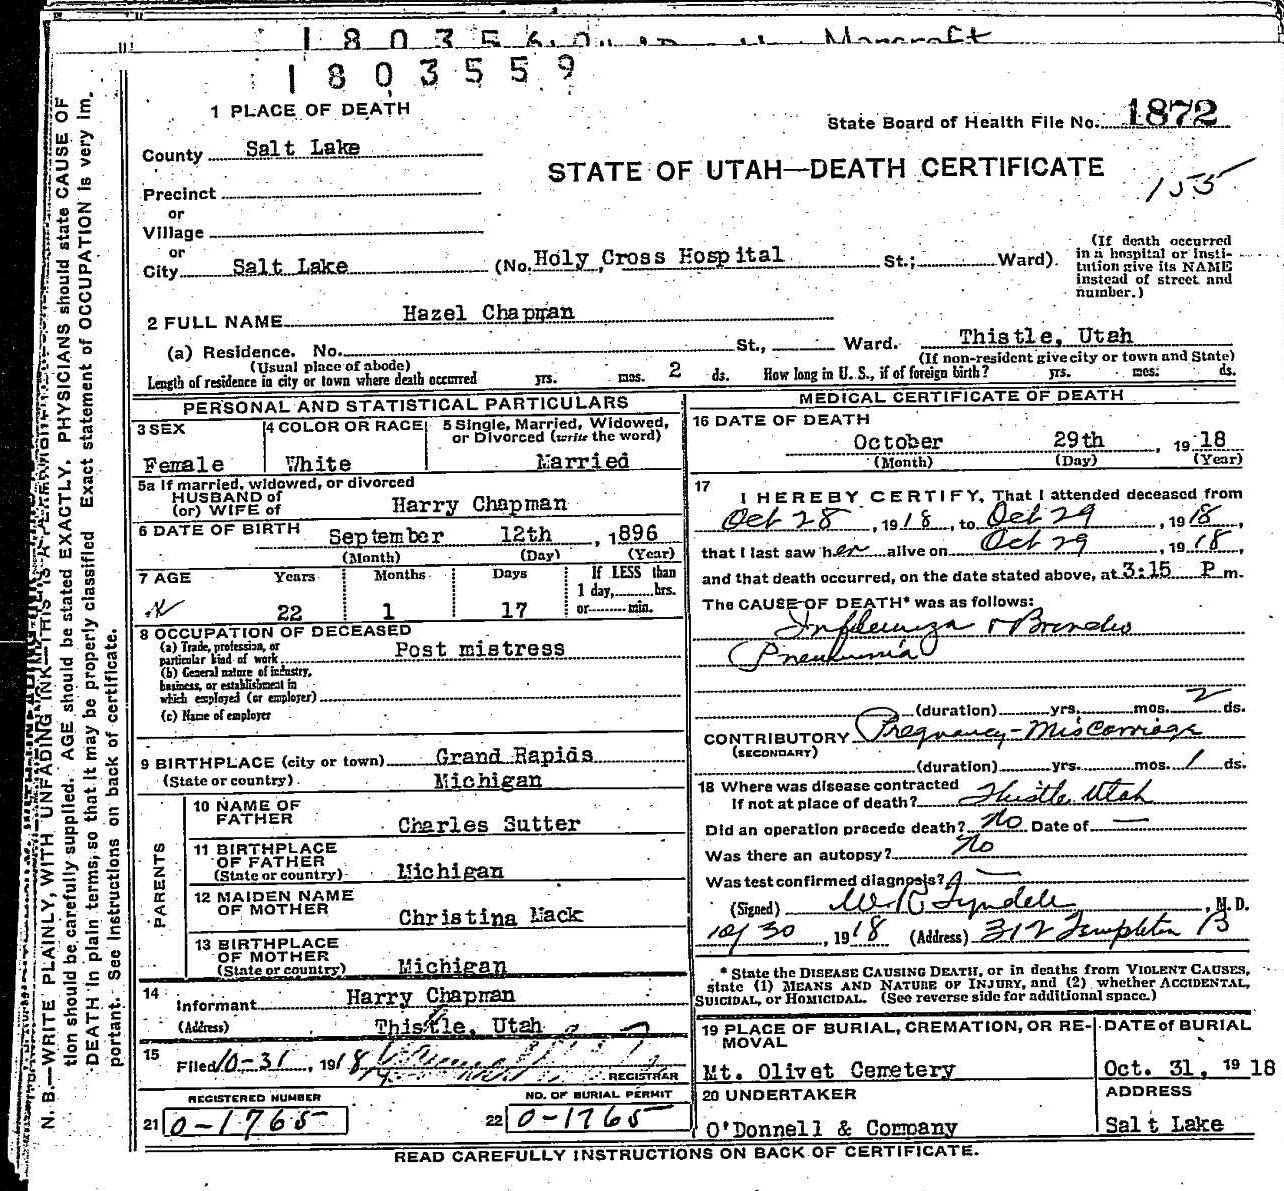 1803559
1 PLACE OF DEATH
State Board of Health File No. 1872
County Salt Lake
STATE OF UTAH—DEATH CERTIFICATE
155
Precinct
or
Village
or
City Salt Lake (No. Holy Cross Hospital St.; Ward).
(If death occurred in a hospital or insti-
tution give its NAME
instead of street and
number.)
2 FULL NAME Hazel Chapman
(a) Residence. No. St., Ward. Thistle, Utah
(Usual place of abode) (If non-resident give city or town and State)
Length of residence in city or town where death occurred yrs. mos. 2 ds. How long in U. S., if of foreign birth? yrs. mos. ds.
PERSONAL AND STATISTICAL PARTICULARS
3 SEX
Female
4 COLOR OR RACE
White
5 Single, Married, Widowed,
or Divorced (write the word)
Married
5a If married, widowed, or divorced
HUSBAND of
(or) WIFE of Harry Chapman
6 DATE OF BIRTH September 12th, 1896
(Month) (Day) (Year)
7 AGE Years Months Days If LESS than
1 day, hrs.
22 1 17 or min.
8 OCCUPATION OF DECEASED
(a) Trade, profession, or
particular kind of work Post mistress
(b) General nature of industry,
business, or establishment in
which employed (or employer)
(c) Name of employer
9 BIRTHPLACE (city or town) Grand Rapids
(State or country) Michigan
PARENTS
10 NAME OF
FATHER Charles Sutter
11 BIRTHPLACE
OF FATHER
(State or country) Michigan
12 MAIDEN NAME
OF MOTHER Christina Mack
13 BIRTHPLACE
OF MOTHER
(State or country) Michigan
14 Informant Harry Chapman
(Address) Thistle, Utah
15 Filed 10-31, 1918
REGISTRAR
REGISTERED NUMBER
21 0-1765
NO. OF BURIAL PERMIT
22 0-1765
MEDICAL CERTIFICATE OF DEATH
16 DATE OF DEATH
October 29th, 1918
(Month) (Day) (Year)
17 I HEREBY CERTIFY, That I attended deceased from
Oct 28, 1918, to Oct 29, 1918,
that I last saw her alive on Oct 29, 1918,
and that death occurred, on the date stated above, at 3:15 P m.
The CAUSE OF DEATH* was as follows:
Influenza & Broncho
Pneumonia
(duration) yrs. mos. 2 ds.
CONTRIBUTORY Pregnancy - Miscarriage
(SECONDARY)
(duration) yrs. mos. 1 ds.
18 Where was disease contracted
If not at place of death? Thistle Utah
Did an operation precede death? No Date of —
Was there an autopsy? No
Was test confirmed diagnosis?
(Signed) W R Tyndale, M. D.
10/30, 1918 (Address) 312 Templeton B
* State the DISEASE CAUSING DEATH, or in deaths from VIOLENT CAUSES,
state (1) MEANS AND NATURE OF INJURY, and (2) whether ACCIDENTAL,
SUICIDAL, or HOMICIDAL. (See reverse side for additional space.)
19 PLACE OF BURIAL, CREMATION, OR RE-
MOVAL
Mt. Olivet Cemetery
DATE of BURIAL
Oct. 31, 1918
20 UNDERTAKER
O'Donnell & Company
ADDRESS
Salt Lake
READ CAREFULLY INSTRUCTIONS ON BACK OF CERTIFICATE.
N. B.—WRITE PLAINLY, WITH UNFADING INK—THIS IS A PERMANENT
tion should be carefully supplied. AGE should be stated EXACTLY. PHYSICIANS should state CAUSE OF
DEATH in plain terms, so that it may be properly classified Exact statement of OCCUPATION is very im.
portant. See Instructions on back of certificate.